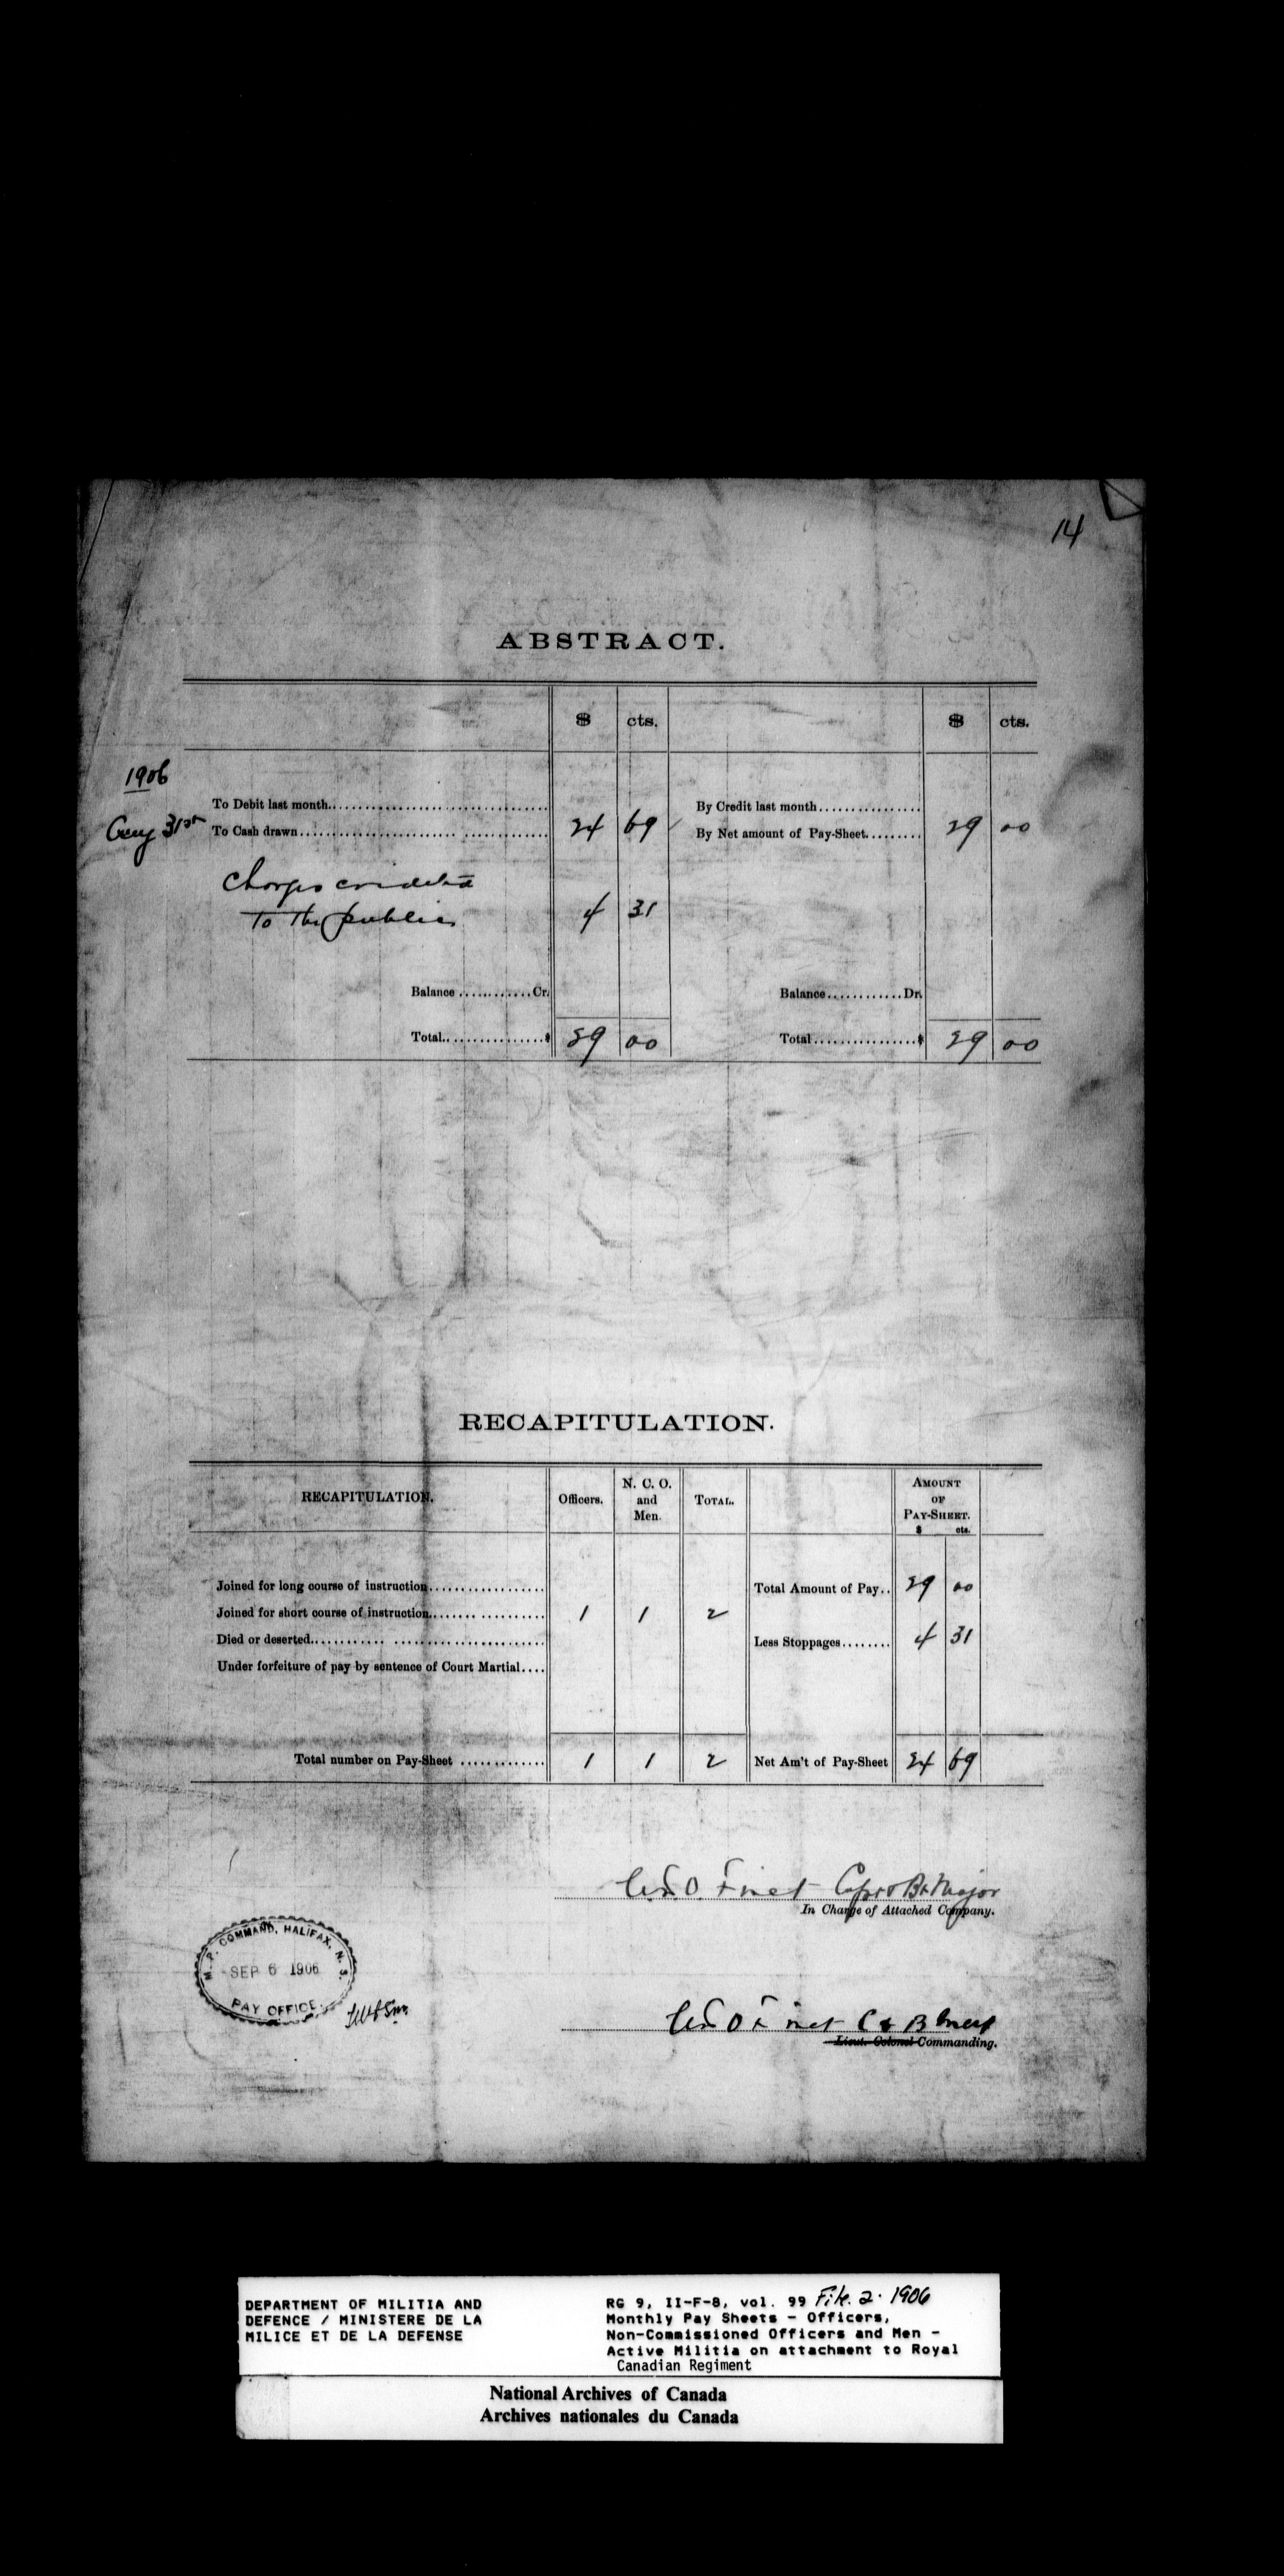 14
ABSTRACT.
$ cts. $ cts.
1906
To Debit last month.................................. By Credit last month................
Aug 31st To Cash drawn........................ ............. 24 69 By Net amount of Pay-Sheet......... 29 00
Charges credited
to the public 4 31
Balance ............Cr. Balance............Dr.
Total................$ 29 00 Total................$ 29 00
RECAPITULATION.
RECAPITULATION. Officers. N. C. O. and Men. TOTAL. AMOUNT OF PAY-SHEET. $ cts.
Joined for long course of instruction.................. Total Amount of Pay.. 29 00
Joined for short course of instruction........ .......... 1 1 2
Died or deserted............ ........................ Less Stoppages........ 4 31
Under forfeiture of pay by sentence of Court Martial....
Total number on Pay-Sheet ............. 1 1 2 Net Am't of Pay-Sheet 24 69
Capt & Bt Major
In Charge of Attached Company.
M. P. COMMAND, HALIFAX, N. S.
SEP 6 1906
PAY OFFICE.
Lieut. Colonel Commanding.
DEPARTMENT OF MILITIA AND
DEFENCE / MINISTERE DE LA
MILICE ET DE LA DEFENSE
RG 9, II-F-8, vol. 99 File. 2. 1906
Monthly Pay Sheets - Officers,
Non-Commissioned Officers and Men -
Active Militia on attachment to Royal
Canadian Regiment
National Archives of Canada
Archives nationales du Canada